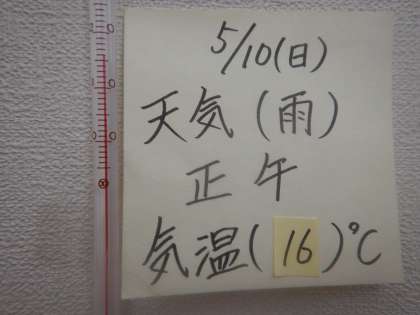 5/10(日)
天気(雨)
正午
気温(16)°C